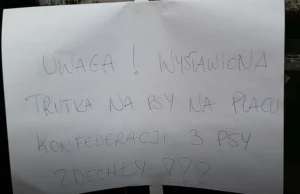 UWAGA ! WYSTAWIONA
TRUTKA NA PSY NA PLACU
KONFEDERACJI 3 PSY
ZDECHŁY ???